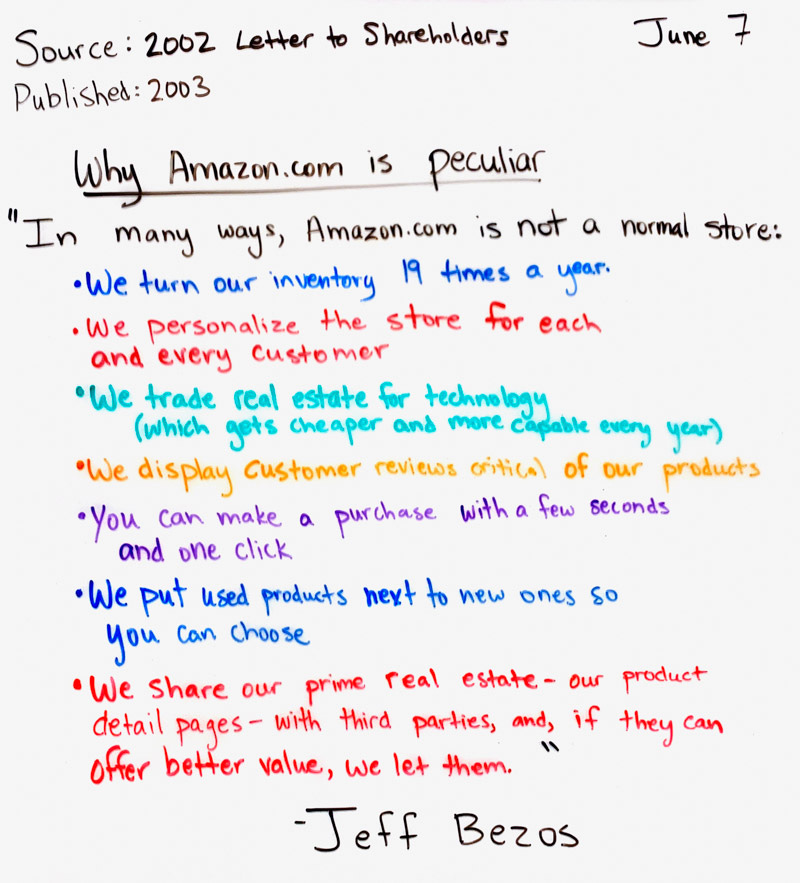 Source: 2002 Letter to Shareholders June 7
Published: 2003
Why Amazon.com is peculiar
"In many ways, Amazon.com is not a normal store:
•We turn our inventory 19 times a year.
•We personalize the store for each
and every customer
•We trade real estate for technology
(which gets cheaper and more capable every year)
•We display customer reviews critical of our products
•You can make a purchase with a few seconds
and one click
•We put used products next to new ones so
you can choose
•We share our prime real estate - our product
detail pages - with third parties, and, if they can
offer better value, we let them."
-Jeff Bezos